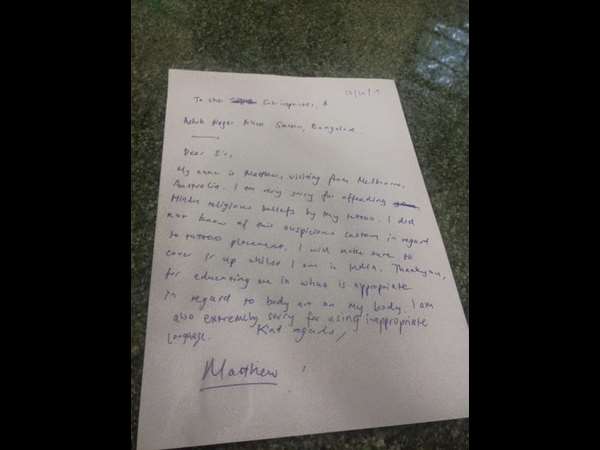 To the Sub inspector,
Ashok Nagar Police Station, Bangalore.
Dear Sir,
My name is Matthew, visiting from Melbourne,
Australia. I am very sorry for offending
Hindu religious beliefs by my tattoo. I did
not know of this auspicious custom in regard
to tattoo placement. I will make sure to
cover it up whilst I am in India. Thankyou,
for educating me in what is appropriate
in regard to body art on my body. I am
also extremely sorry for using inappropriate
language. Kind regards,
Matthew